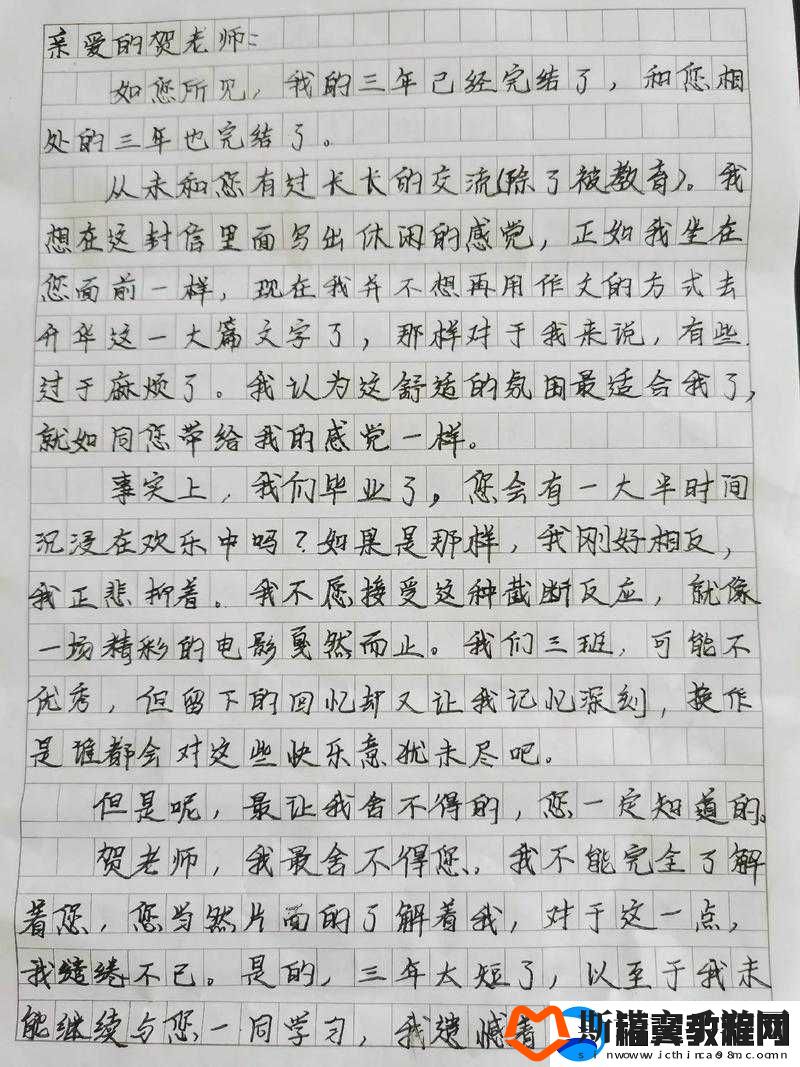 亲爱的贺老师:
如您所见，我的三年已经完结了，和您相
处的三年也完结了。
从未和您有过长长的交流(除了被教育)。我
想在这封信里面写出休闲的感觉，正如我坐在
您面前一样，现在我并不想再用作文的方式去
升华这一大篇文字了，那样对于我来说，有些
过于麻烦了。我认为这舒适的氛围最适合我了，
就如同您带给我的感觉一样。
事实上，我们毕业了，您会有一大半时间
沉浸在欢乐中吗？如果是那样，我刚好相反，
我正悲抑着。我不愿接受这种截断反应，就像
一场精彩的电影戛然而止。我们三班，可能不
优秀，但留下的回忆却又让我记忆深刻，换作
是谁都会对这些快乐意犹未尽吧。
但是呢，最让我舍不得的，您一定知道的。
贺老师，我最舍不得您，我不能完全了解
着您，您当然片面的了解着我，对于这一点，
我缱绻不已。是的，三年太短了，以至于我未
能继续与您一同学习，我遗憾着